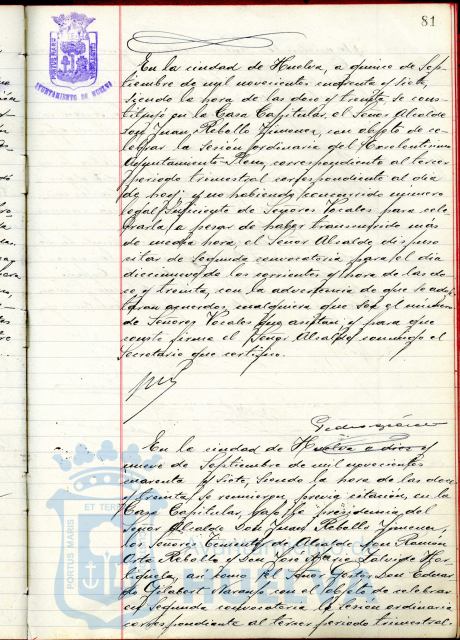 81
AYUNTAMIENTO DE HUELVA
En la ciudad de Huelva, a quince de Sep-
tiembre de mil novecientos cuarenta y siete,
siendo la hora de las doce y treinta, se cons-
tituyó en la Casa Capitular, el Señor Alcalde
Don Juan Rebollo Jimenez, con objeto de ce-
lebrar la Sesión ordinaria del Excelentísimo
Ayuntamiento Pleno, correspondiente al tercer
periodo trimestral correspondiente al día
de hoy; y no habiendo concurrido número
legal suficiente de Señores Vocales para cele-
brarla, a pesar de haber transcurrido más
de media hora, el Señor Alcalde, dispuso
citar de segunda convocatoria para el día
diecinueve de los corrientes y hora de las do-
ce y treinta, con la advertencia de que se adop-
tarán acuerdos, cualquiera que sea el número
de Señores Vocales que asistan; y para que
conste firma el Señor Alcalde conmigo el
Secretario que certifico.
En la ciudad de Huelva a diez y
nueve de Septiembre de mil novecientos
cuarenta y siete, siendo la hora de las doce
y treinta, se reunieron, previa citación, en la
Casa Capitular, bajo la presidencia del
Señor Alcalde Don Juan Rebollo Jimenez,
los Señores Tenientes de Alcalde Don Ramón
Orta Rebollo y Don José María
y Don Eduar-
do Gilabert Naranjo con el objeto de celebrar
en segunda convocatoria la sesión ordinaria
correspondiente al tercer periodo trimestral.
PORTUS MARIS ET TERRAE
Ayuntamiento de
HUELVA